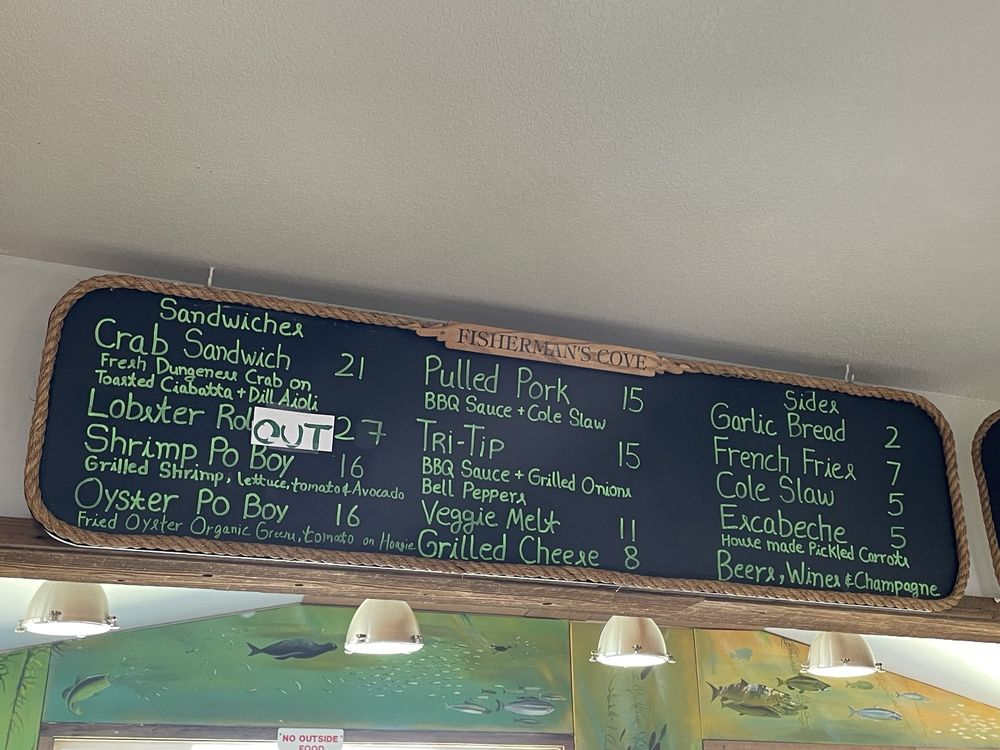 FISHERMAN'S COVE
Sandwiches
Crab Sandwich 21
Fresh Dungeness Crab on
Toasted Ciabatta + Dill Aioli
Lobster Rol OUT 27
Shrimp Po Boy 16
Grilled Shrimp, lettuce, tomato & Avocado
Oyster Po Boy 16
Fried Oyster Organic Greens, tomato on Hoagie
Pulled Pork 15
BBQ Sauce + Cole Slaw
Tri-Tip 15
BBQ Sauce + Grilled Onions
Bell Peppers
Veggie Melt 11
Grilled Cheese 8
Sides
Garlic Bread 2
French Fries 7
Cole Slaw 5
Escabeche 5
House made Pickled Carrots
Beers, Wines & Champagne
NO OUTSIDE
FOOD